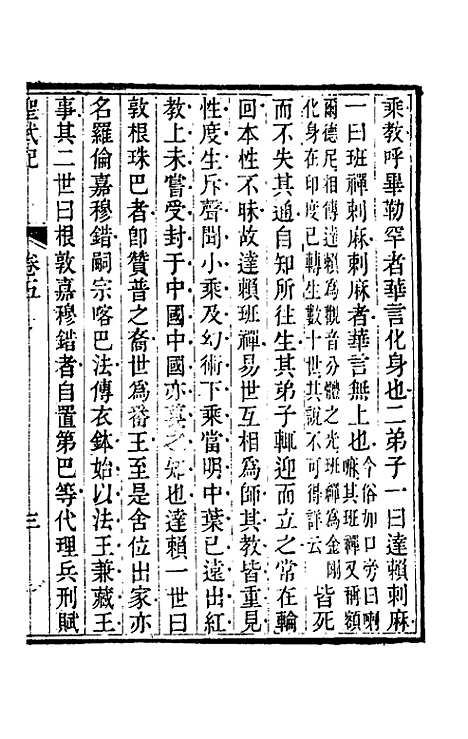 乘教呼畢勒罕者華言化身也二弟子一曰達賴刺麻
一曰班禪刺麻刺麻者華言無上也今俗加口旁曰喇嘛其班禪又稱額
爾德尼相傳達賴為觀音分體之光班禪為金剛化身在印度已轉生數十世其說不可得詳云皆死
而不失其通自知所往生其弟子輒迎而立之常在輪
回本性不昧故達賴班禪易世互相為師其教皆重見
性度生斥聲聞小乘及幻術下乘當明中葉已遠出紅
教上未嘗受封于中國中國亦莫之知也達賴一世曰
敦根珠巴者卽贊普之裔世為番王至是舍位出家亦
名羅倫嘉穆錯嗣宗喀巴法傳衣鉢始以法王兼藏王
事其二世曰根敦嘉穆錯者自置第巴等代理兵刑賦
聖武記
卷五
三